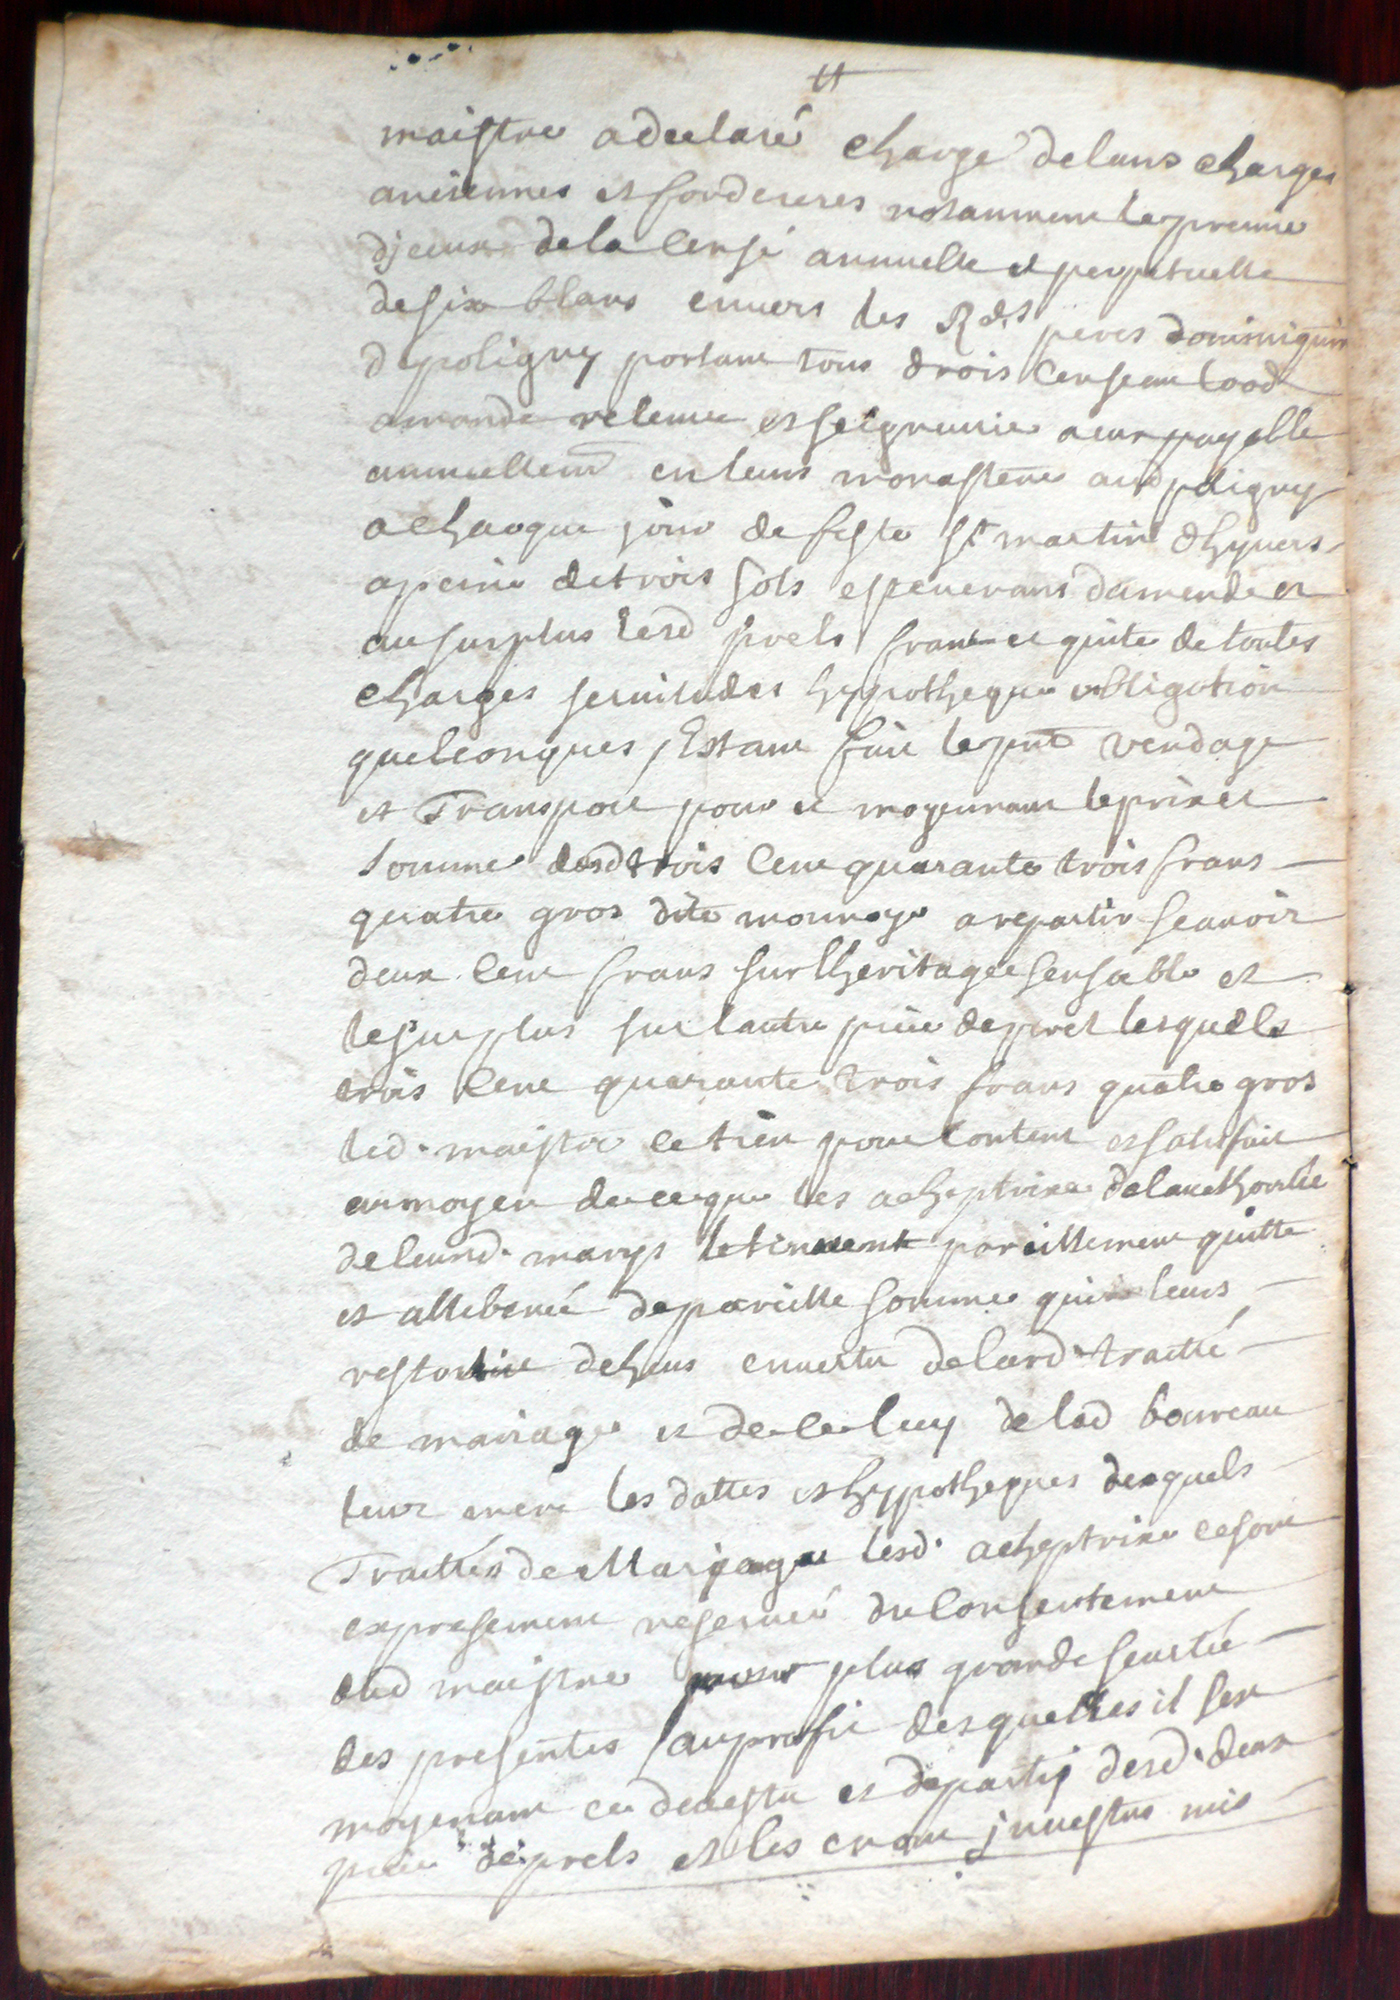 maistre a declaré chargé de leurs charges
anciennes et foncieres notamment le premier
d'jceux de la Cense annuelle et perpetuelle
de six blans enuers les Rds peres dominiquins
d poligny portant tous drois Censeau lood
amande retenue et seigneurie a eux payable
annuellemt en leurs monastere aud poligny
a chacque jour de feste st martin dhyuers
a peine de trois sols esteuenans damende et
au surplus lesd prels franc et quite de toutes
charges seruitudes hypotheque obligation
quelconques Estant fait le pnt vendage
et Transport pour et moyennant le prix et
somme desd trois Cent quarante trois frans
quatre gros dite monnoye a repartir scauoir
deux Cent frans sur lheritage Censable et
le surplus sur lautre piece de prel lesquels
trois Cent quarante trois frans quatre gros
led. maistre ce tien pour Content et satisfait
au moyen de ce que les acheptrixe de lauthorite
de leursd. marys le tiennent pareillement quitte
et alliberé de pareille somme qui leurs
restoit dehus en vertu de leurd. traitté
de mariage et de celuy de lad bouveau
leur mere les dattes et hypotheques desquels
Traittés de Mariage lesd. acheptrixe ce sont
expressement reserué du Consentement
dud maistre pour plus grande seurté
des presentes / au profit desquelles il sen
moyenant ce deuestu et departy desd. deux
piece de prels et les en ont jnuestus mis